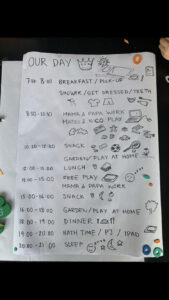 OUR DAY
7:00 8:30 BREAKFAST / PICK-UP
SHOWER / GET DRESSED / TEETH
8:30 - 10:30 MAMA & PAPA WORK
PLAY
10:30 - 12:00 SNACK
GARDEN / PLAY AT HOME
12:00 - 13:00 LUNCH
13:00 - 15:00 FREE PLAY
MAMA & PAPA WORK
15:00 - 16:00 SNACK
16:00 - 18:00 GARDEN / PLAY AT HOME
18:00 - 19:00 DINNER
19:00 - 20:30 BATH TIME / PJ / IPAD
20:30 - 21:00 SLEEP